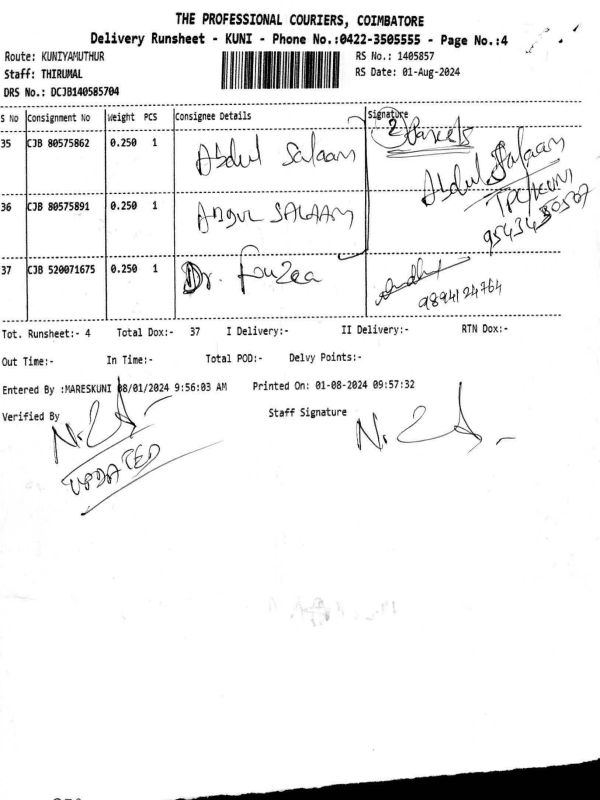 THE PROFESSIONAL COURIERS, COIMBATORE
Delivery Runsheet - KUNI - Phone No.:0422-3505555 - Page No.:4
Route: KUNIYAMUTHUR RS No.: 1405857
Staff: THIRUMAL RS Date: 01-Aug-2024
DRS No.: DCJB140585704
S No Consignment No Weight PCS Consignee Details Signature
2 Parcels
35 CJB 80575862 0.250 1 Abdul Salaam Abdul Salaam
TPC/KUNI
36 CJB 80575891 0.250 1 ABDUL SALAAM
37 CJB 520071675 0.250 1 Dr. Fouzea
9894124764
Tot. Runsheet:- 4 Total Dox:- 37 I Delivery:- II Delivery:- RTN Dox:-
Out Time:- In Time:- Total POD:- Delvy Points:-
Entered By :MARESKUNI 08/01/2024 9:56:03 AM Printed On: 01-08-2024 09:57:32
Verified By Staff Signature
UPDATED